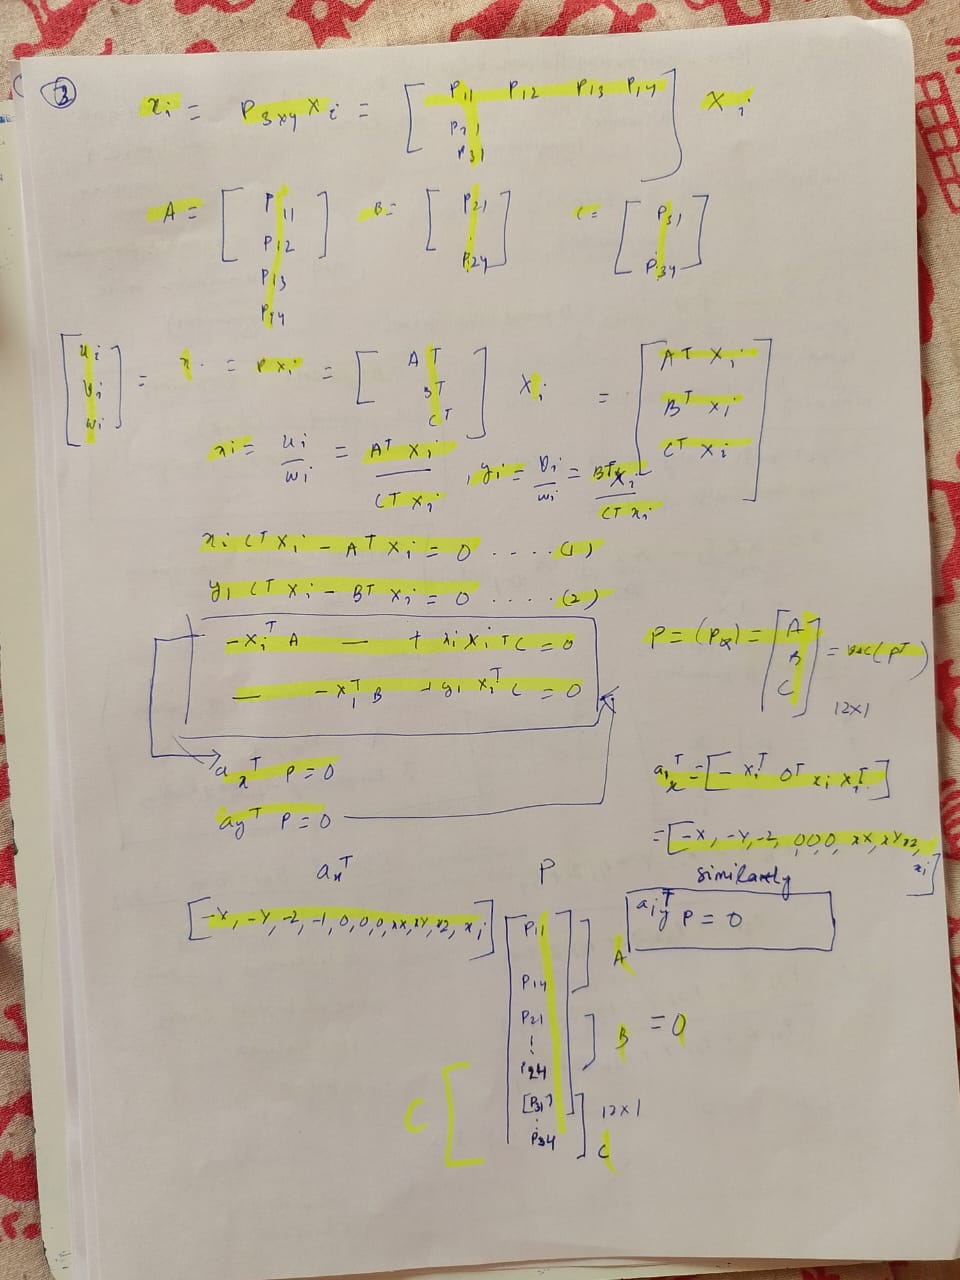 3
xi = P3x4 Xi = [ P11 P12 P13 P14 ] Xi
P21
P31
A = [ P11 P12 P13 P14 ] B = [ P21 P24 ] C = [ P31 P34 ]
[ ui vi wi ] = x. = P Xi = [ A^T B^T C^T ] Xi = [ A^T Xi B^T Xi C^T Xi ]
xi = ui/wi = A^T Xi / C^T Xi , yi = vi/wi = B^T Xi / C^T Xi
xi C^T Xi - A^T Xi = 0 .... (1)
yi C^T Xi - B^T Xi = 0 .... (2)
-Xi^T A — + xi Xi^T C = 0
— -Xi^T B + yi Xi^T C = 0
P = (Pk) = [ A B C ] = vec(P^T)
12x1
ax^T P = 0
ay^T P = 0
aix^T = [ -Xi^T 0^T xi Xi^T ]
= [ -X, -Y, -Z, 0,0,0, xX, xYxz, xi ]
similarly
aiy^T P = 0
ax^T P
[ -X, -Y, -Z, -1, 0, 0, 0, xX, xY, xz, xi ] [ P11
P14 ] A
P21
⋮
P24 ] B = 0
[P31]
⋮
P34 ] C
12x1
C [